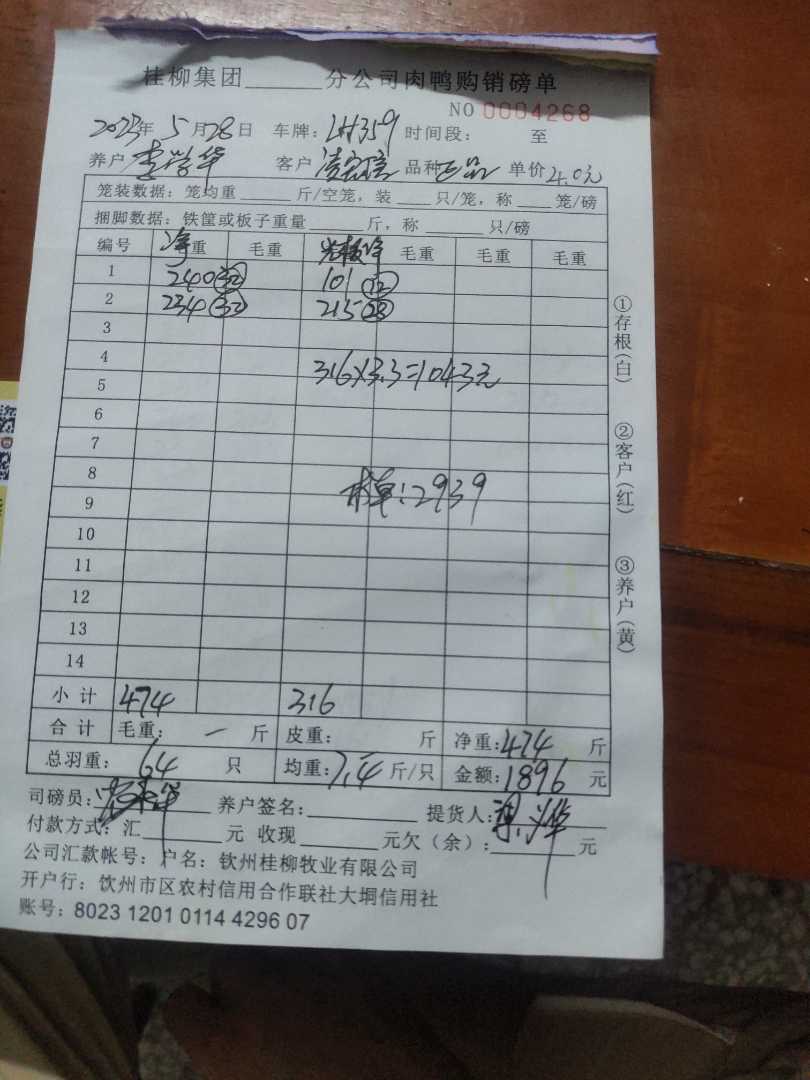 桂柳集团______分公司肉鸭购销磅单
NO 0004268
2023年 5月28日 车牌：LH359 时间段： 至
养户 李学华 客户 品种 正品 单价 4.0元
笼装数据：笼均重____斤/空笼，装____只/笼，称____笼/磅
捆脚数据：铁筐或板子重量____斤，称____只/磅
编号 净重 毛重 光板净 毛重 毛重 毛重
1 240(32) 101(12)
2 234(32) 215(28)
3
4 316×3.3=1043元
5
6
7
8
9 2939
10
11
12
13
14
小计 474 316
合计 毛重： — 斤 皮重： 斤 净重：474 斤
总羽重： 64 只 均重：7.4 斤/只 金额：1896 元
司磅员： 养户签名： 提货人：
付款方式：汇____元 收现____元欠（余）：____元
公司汇款帐号：户名：钦州桂柳牧业有限公司
开户行：钦州市区农村信用合作联社大垌信用社
账号：8023 1201 0114 4296 07
①存根（白）
②客户（红）
③养户（黄）